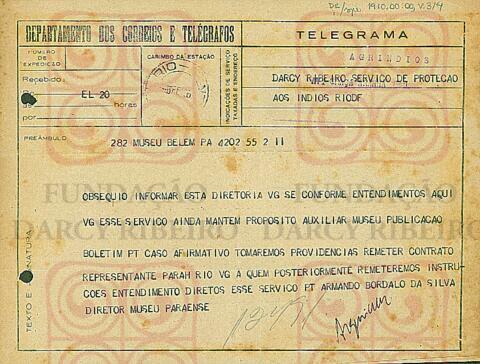 De/spi 1910.00.00, V.3/4
DEPARTAMENTO DOS CORREIOS E TELÉGRAFOS
TELEGRAMA
NÚMERO DE EXPEDIÇÃO
CARIMBO DA ESTAÇÃO
INDICAÇÕES DE SERVIÇO TAXADAS E ENDEREÇO
AGRINDIOS
DARCY RIBEIRO SERVIÇO DE PROTEÇAO
AOS INDIOS RIODF
Recebido
de EL 20
às horas
por
PREÂMBULO
282 MUSEU BELEM PA 4202 55 2 11
OBSEQUIO INFORMAR ESTA DIRETORIA VG SE CONFORME ENTENDIMENTOS AQUI
VG ESSE SERVICO AINDA MANTEM PROPOSITO AUXILIAR MUSEU PUBLICACAO
BOLETIM PT CASO AFIRMATIVO TOMAREMOS PROVIDENCIAS REMETER CONTRATO
REPRESENTANTE PARAH RIO VG A QUEM POSTERIORMENTE REMETEREMOS INSTRU
COES ENTENDIMENTO DIRETOS ESSE SERVICO PT ARMANDO BORDALO DA SILVA
DIRETOR MUSEU PARAENSE
TEXTO E ASSINATURA
FUNDAÇÃO
DARCY RIBEIRO
FUNDAÇÃO
DARCY RIBEIRO